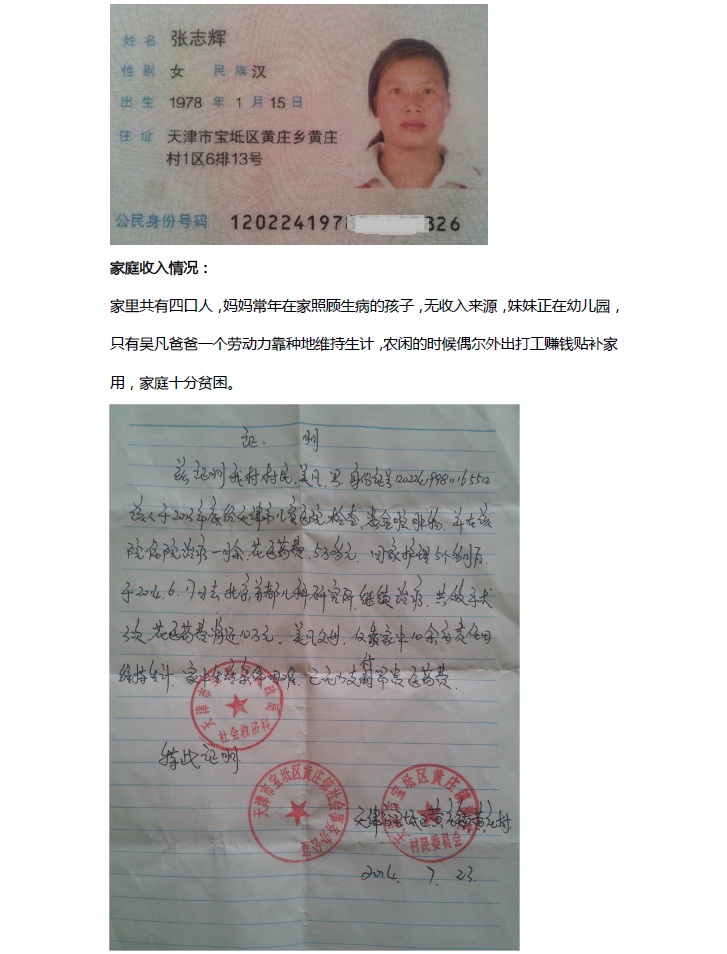 姓名 张志辉
性别 女 民族 汉
出生 1978 年 1 月 15 日
住址 天津市宝坻区黄庄乡黄庄
村1区6排13号
公民身份号码 120224197 326
家庭收入情况：
家里共有四口人，妈妈常年在家照顾生病的孩子，无收入来源，妹妹正在幼儿园，
只有吴凡爸爸一个劳动力靠种地维持生计，农闲的时候偶尔外出打工赚钱贴补家
用，家庭十分贫困。
证 明
兹证明我村村民 吴凡 男 身份证号
该人于 年底经天津市儿童医院检查 患 并在该
院住院治疗一月余 花医药费 5万多元 回家护理5个多月后
于2014.6.17日去北京首都儿科研究所 继续治疗 共做手术
次 花医药费将近10万元 吴凡父母 仅靠家中10余亩责任田
维持生计 家中生活条件困难 已无力支付昂贵医药费
天津市宝坻区 政局
社会救济科
特此证明
天津市宝坻区黄庄镇社会事务办公室
天津市宝坻区黄庄镇黄庄村
村民委员会
天津市宝坻区黄庄镇黄庄村
2014. 7. 23.